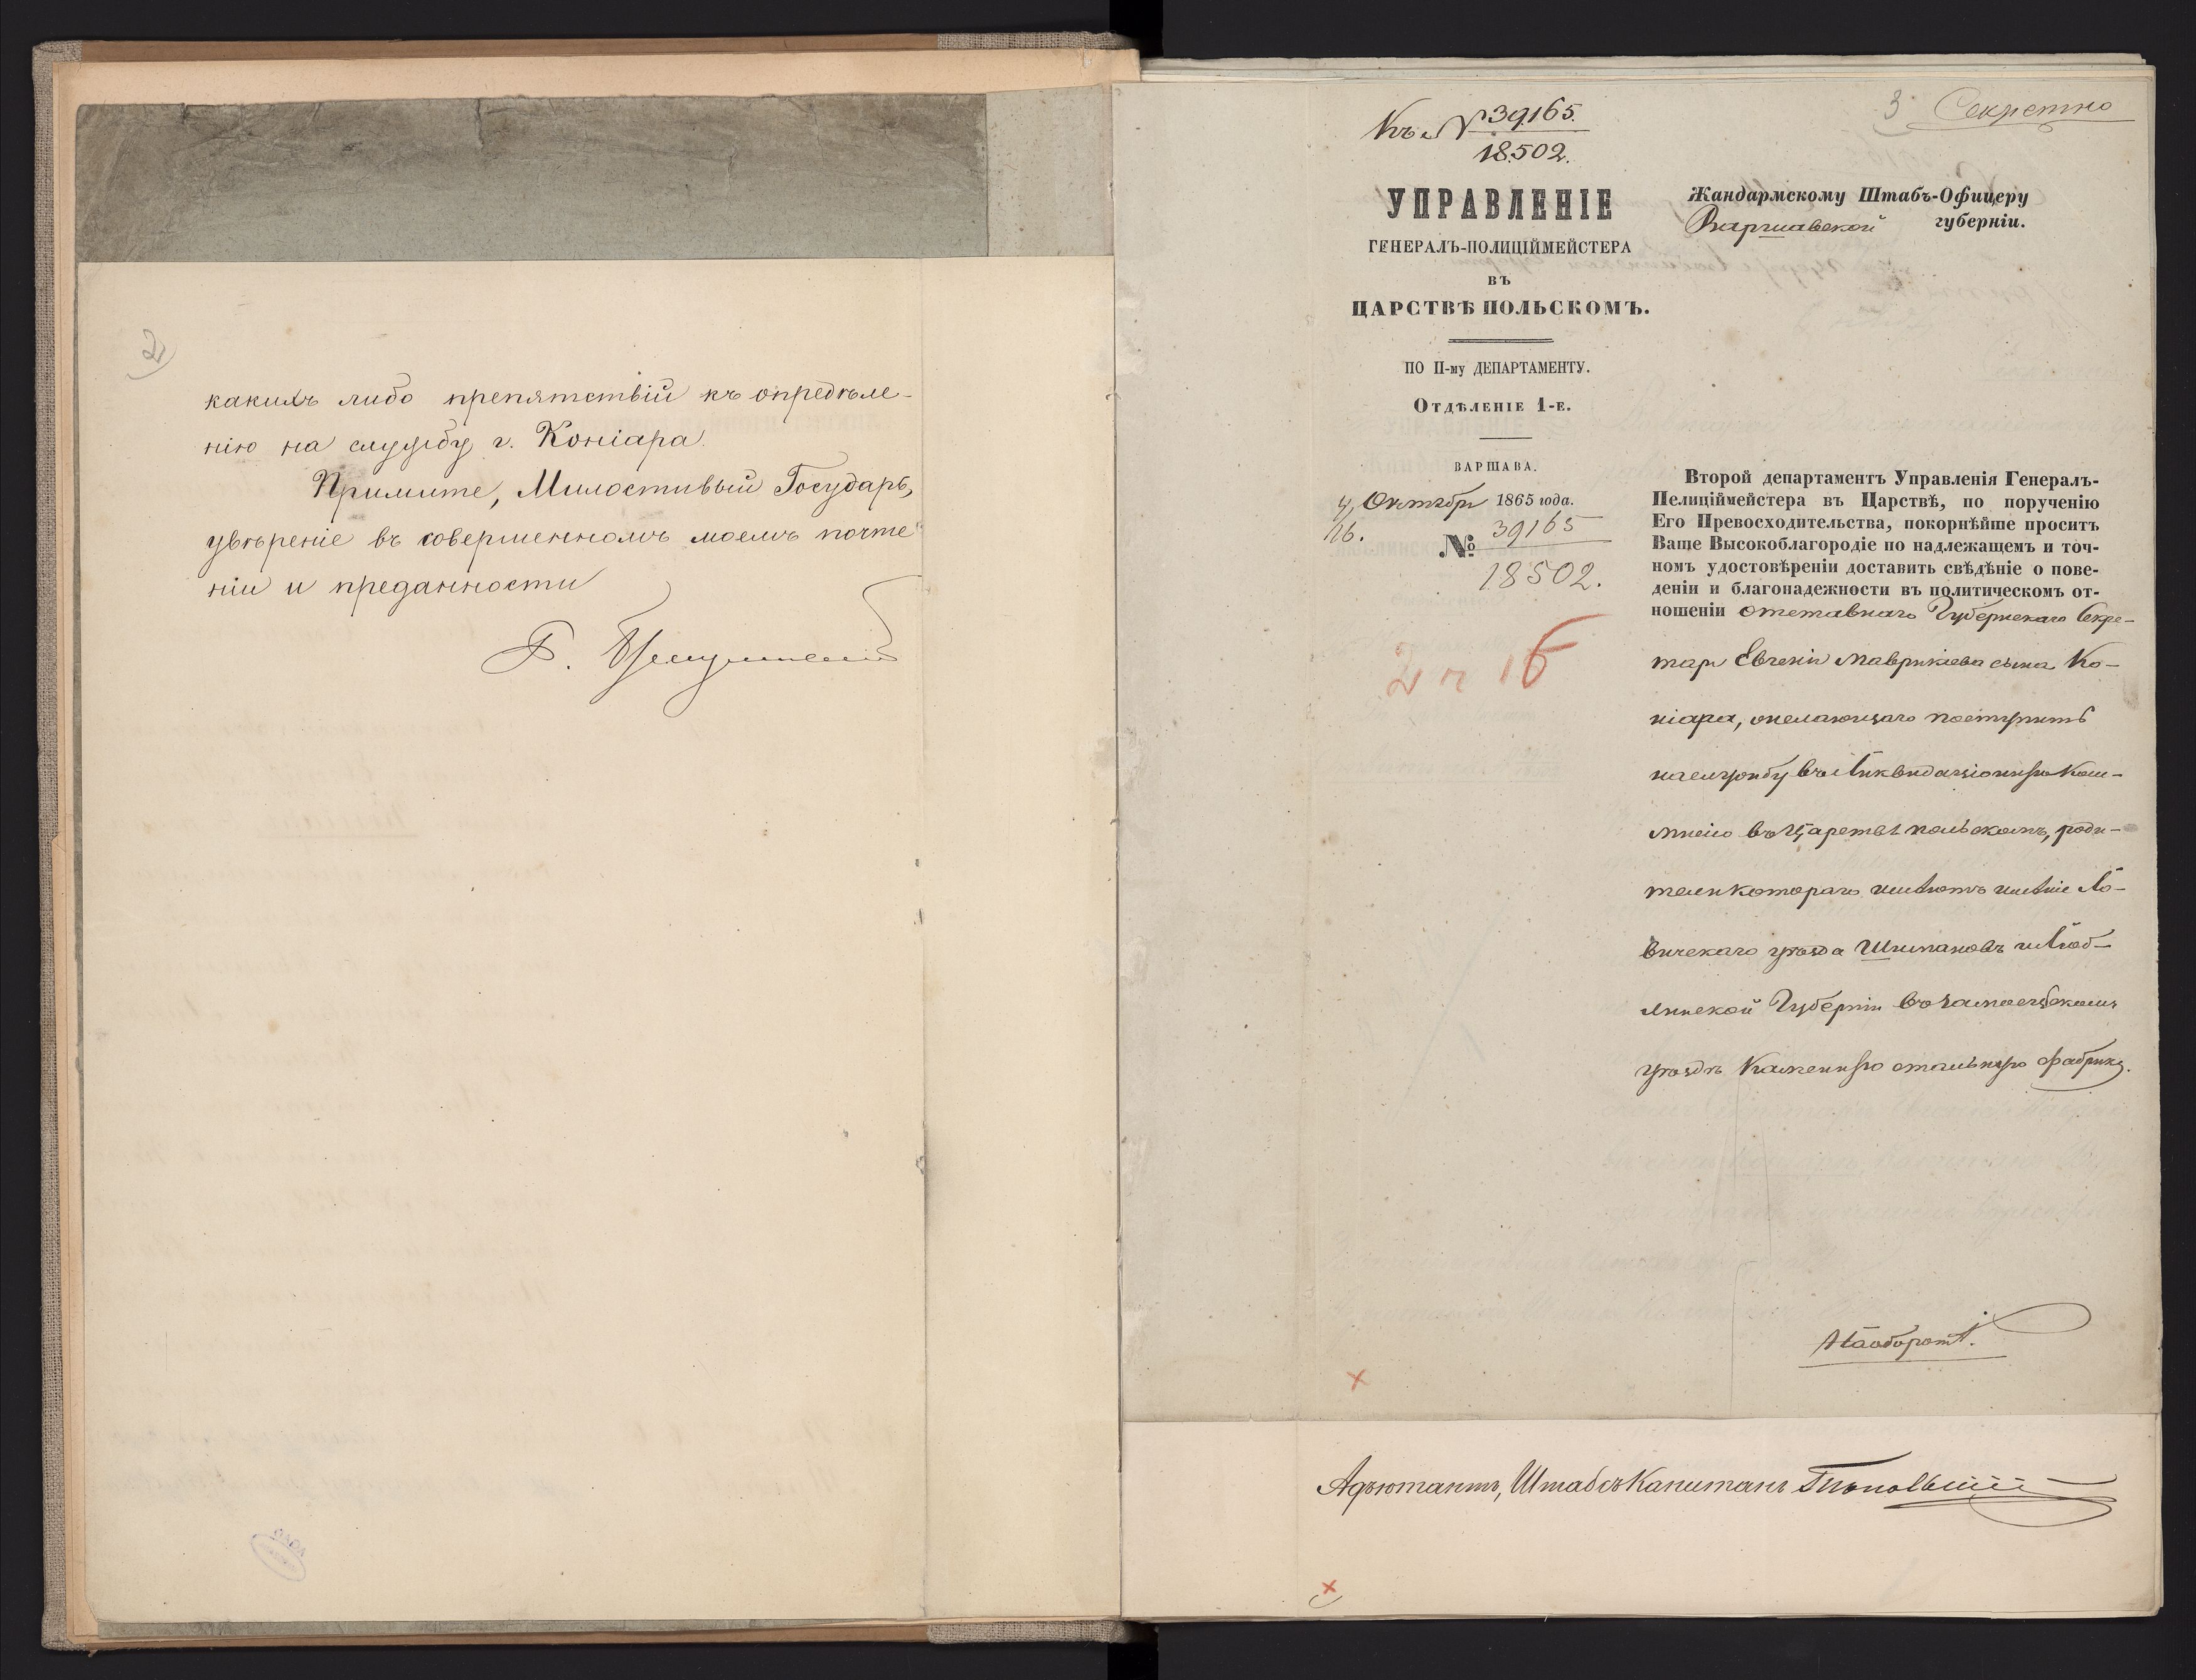 2
какихъ либо препятствій къ опредѣле-
нію на службу г. Коніара.
Примите, Милостивый Государь,
увѣреніе въ совершенномъ моемъ почте-
ніи и преданности
3 Секретно
Къ № 39165.
18502.
УПРАВЛЕНІЕ
ГЕНЕРАЛЪ-ПОЛИЦІЙМЕЙСТЕРА
ВЪ
ЦАРСТВѢ ПОЛЬСКОМЪ.
ПО II-му ДЕПАРТАМЕНТУ.
Отдѣленіе 1-е.
ВАРШАВА.
4/16. Октября 1865 года.
№ 39165
18502.
Жандармскому Штабъ-Офицеру
Варшавской губерніи.
Второй департаментъ Управленія Генералъ-
Пелиціймейстера въ Царствѣ, по порученію
Его Превосходительства, покорнѣйше проситъ
Ваше Высокоблагородіе по надлежащемъ и точ-
номъ удостовѣреніи доставить свѣдѣніе о пове-
деніи и благонадежности въ политическомъ от-
ношеніи отставнаго Губернскаго Секре-
таря Евгенія Маврикіева сына Ко-
ніара, желающаго поступить
на службу въ Ликвидаціонную Ком-
мисію въ Царствѣ Польскомъ, роди-
тели котораго имѣютъ имѣніе Ло-
вичскаго уѣзда Шимановъ и Люб-
линской Губерніи въ Замостьскомъ
уѣздѣ Каменную стольную фабрику.
Наоборотѣ.
Адъютантъ, Штабсъ Капитанъ